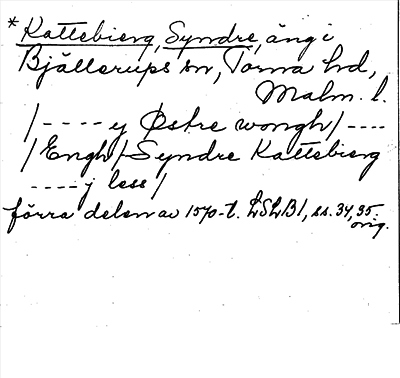 *Kattebierg, Syndre, äng i
Bjällerups sn, Torna hd,
Malm. l.
/ - - - - y Østre wongh / - - - -
/ Engh / Syndre Kattebierg
- - - - j less /
förra delen av 1570-t. LSLB1, ss. 34, 35.
orig.